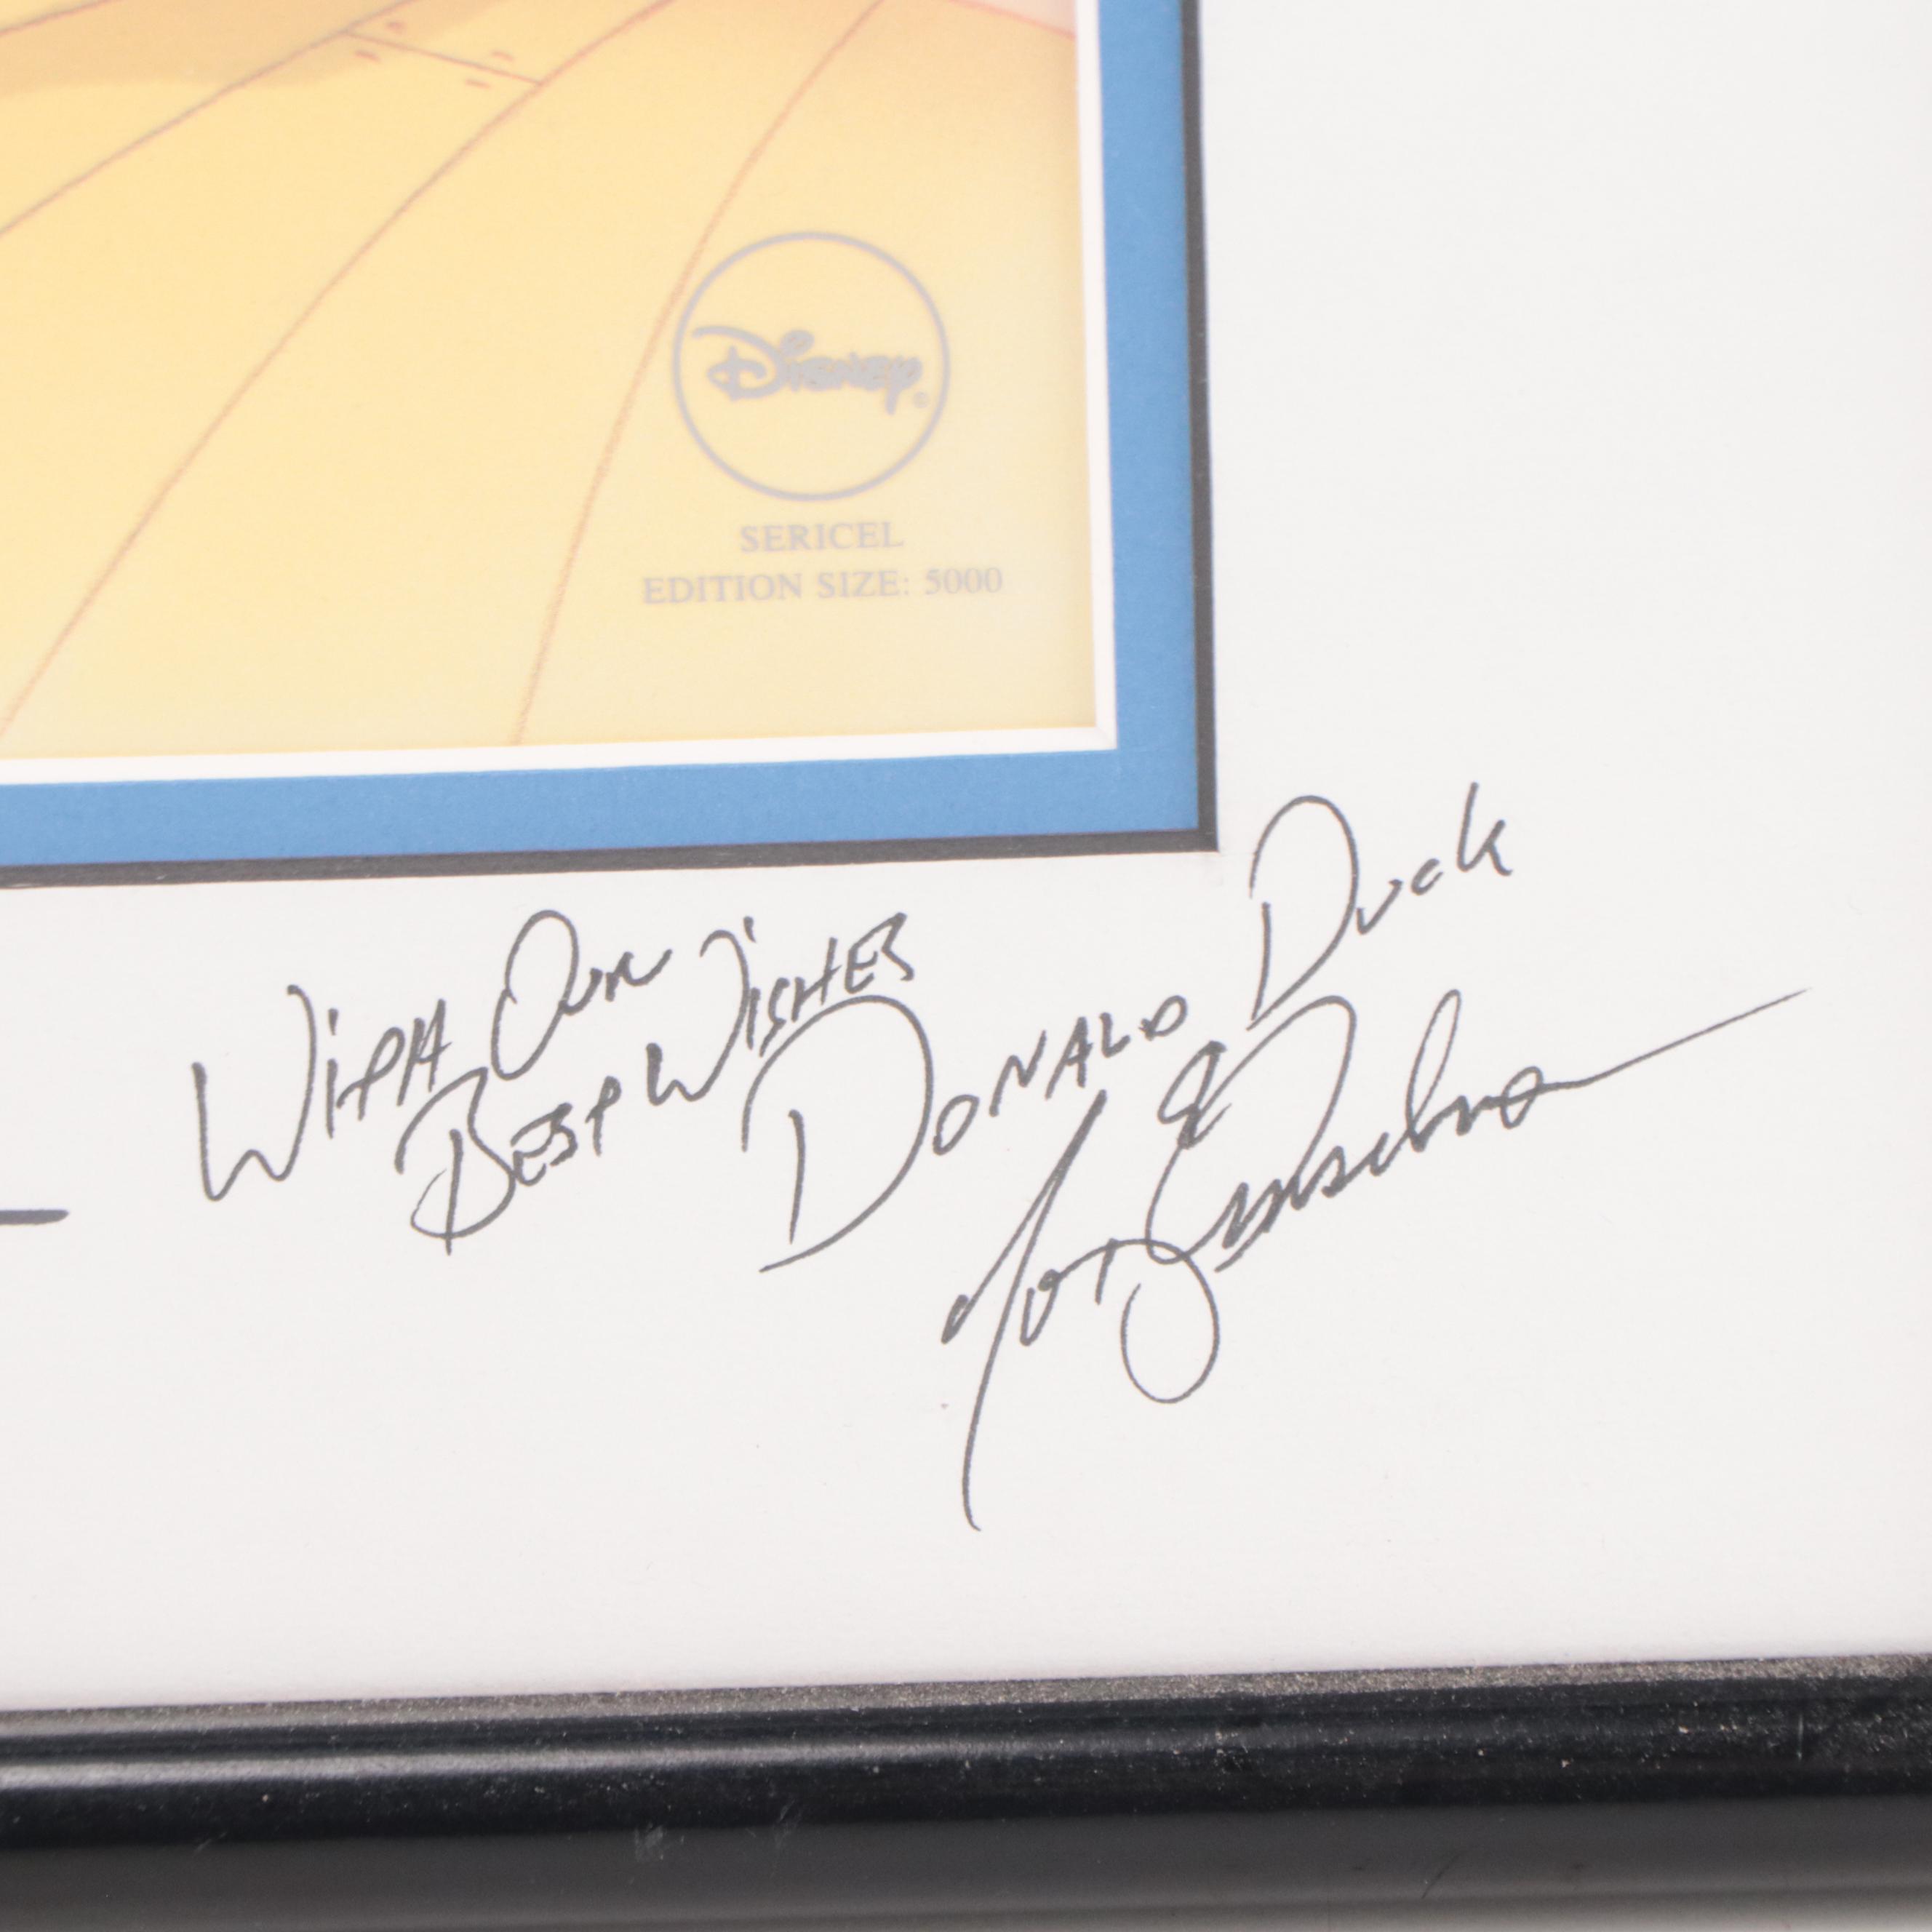 Disney®
SERICEL
EDITION SIZE: 5000
WITH OUR
BEST WISHES
DONALD Duck
Tony Anselmo